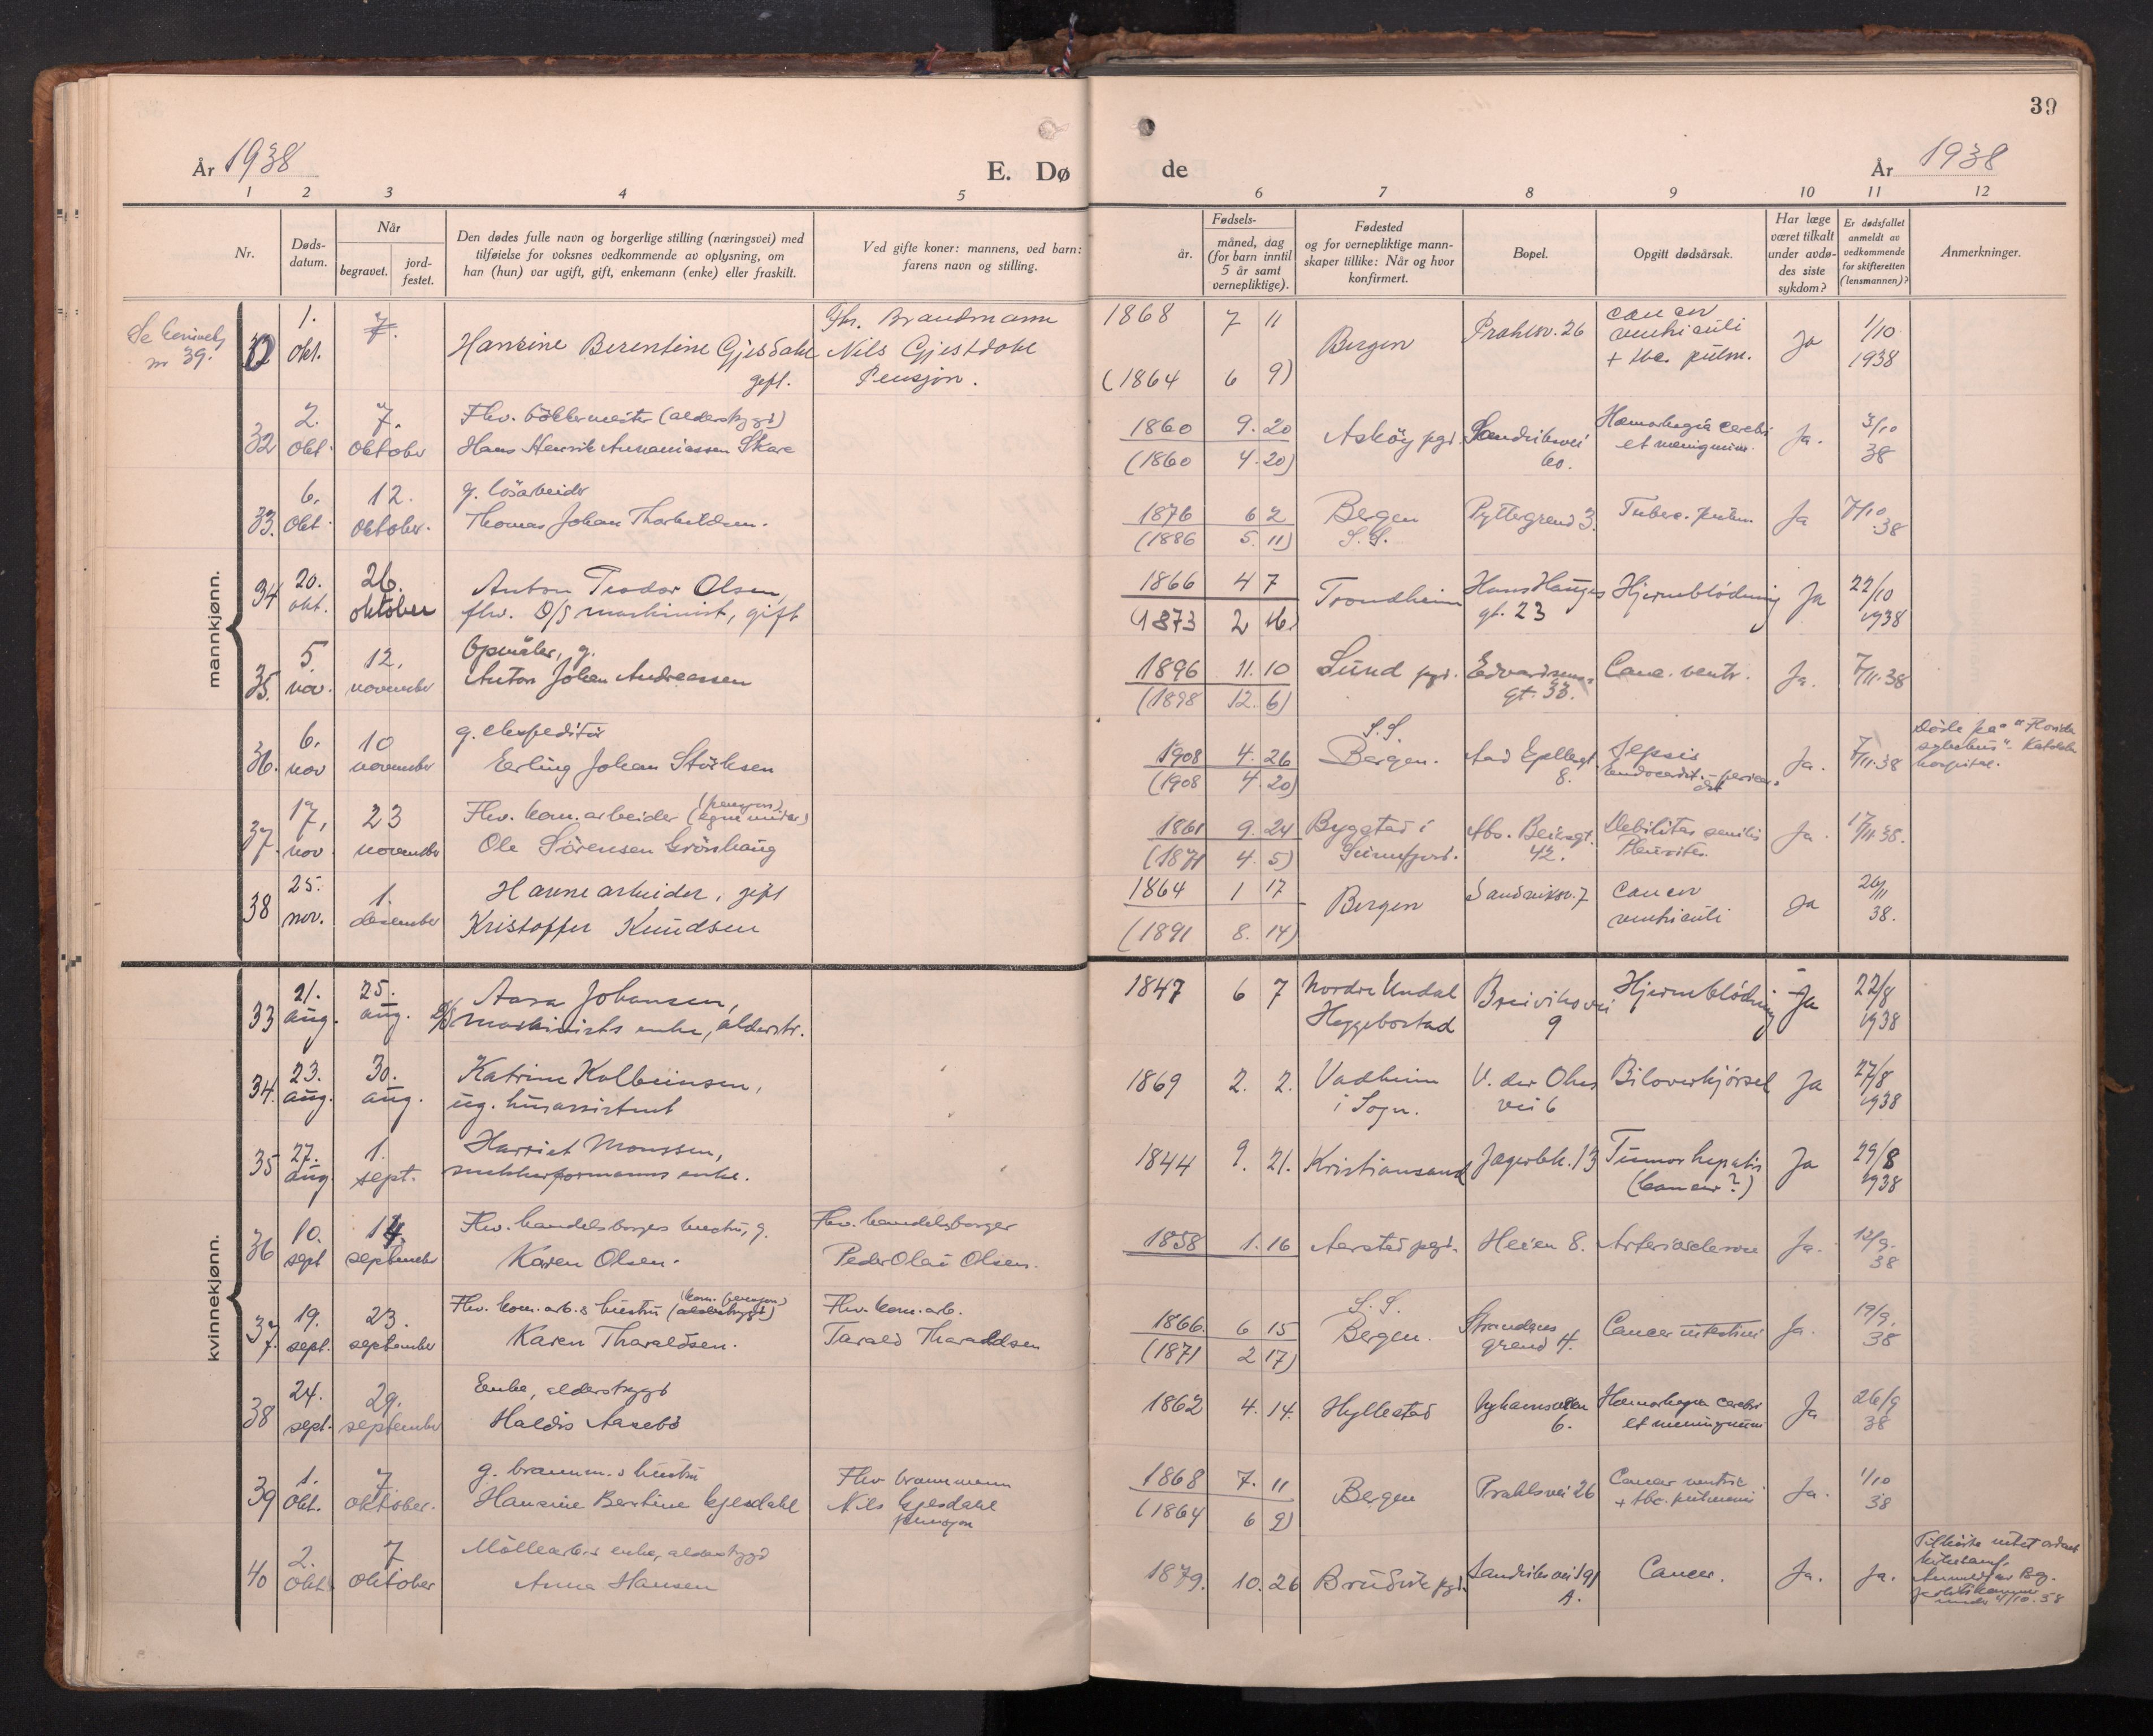 39
År 1938
E. Dø de
År 1938
1 2 3 4 5 6 7 8 9 10 11 12
Nr.
Døds-
datum.
Når
begravet.
jord-
festet.
Den dødes fulle navn og borgerlige stilling (næringsvei) med
tilføielse for voksnes vedkommende av oplysning, om
han (hun) var ugift, gift, enkemann (enke) eller fraskilt.
Ved gifte koner: mannens, ved barn:
farens navn og stilling.
Fødsels-
år.
måned, dag
(for barn inntil
5 år samt
vernepliktige).
Fødested
og for vernepliktige mann-
skaper tillike: Når og hvor
konfirmert.
Bopel.
Opgitt dødsårsak.
Har læge
været tilkalt
under avdø-
des siste
sykdom?
Er dødsfallet
anmeldt av
vedkommende
for skifteretten
(lensmannen)?
Anmerkninger.
mannkjønn.
nr 39.
1. okt. 7.
Hansine Berentine Gjesdahl
gift.
Fhv. Brandmann
Nils Gjestdahl
Pensjon.
1868 7 11
(1864 6 9)
Bergen
Prahlsv. 26
cancer
ventriculi
+ tbc. pulm.
Ja
1/10
1938
32 2. okt. 7. oktober
Fhv. bökkermester (alderstrygd)
Hans Henrik Annaniassen Skare
1860 9. 20
(1860 4. 20)
Asköy pgd.
Sandviksvei
60.
Hæmorhagia cerebri
et meningium.
Ja.
3/10
38
33. 6. okt. 12. oktober.
g. lösarbeider
Thomas Johan Thorkildsen.
1876 6 2
(1886 5. 11)
Bergen
S.S.
Pyttergrend 3.
Tuberc. pulm.
Ja
7/10
.38
34 20. okt. 26. oktober
Anton Teodor Olsen,
fhv. D/S maskinist, gift
1866 4 7
(1873 2 16.)
Trondheim
Hans Hauges
gt. 23
Hjerneblödning
Ja
22/10
1938
35. 5. nov. 12. november
Opmåler, g.
Anton Johan Andreassen
1896 11. 10
(1898 12. 6)
Sund pgd.
Edvardsens
gt. 33.
Canc. ventr.
Ja.
7/11.38
36. 6. nov 10 november
g. ekspeditör
Erling Johan Störksen
1908 4. 26
(1908 4. 20)
S.S.
Bergen.
8.
Sepsis
Ja.
7/11.38
Döde på "Florida
sykehus".
hospital.
37. 17. nov. 23 november
Fhv. kom. arbeider
Ole Sörensen Grönhaug
1861 9. 24
(1871 4. 5)
Bygstad i
Sunnfjord.
42.
Debilitas senilis
Pleurites.
Ja.
17/11.38.
38 25. nov. 1. desember
Havnearbeider, gift
Kristoffer Knudsen
1864 1 17
(1891 8. 14)
Bergen
Sandviksv. 7
cancer
ventriculi
Ja
26/11
38.
kvinnekjønn.
33 21. aug. 25. aug.
Aasa Johansen,
D/S maskinists enke, alderstr.
1847 6 7
Nordre Undal
Heggebostad
Breiviksvei
9
Hjerneblödning
Ja
22/8
1938
34. 23. aug. 30. aug.
Katrine Kolbeinsen,
ug. husassistent
1869 2. 2.
Vadheim
i Sogn.
V. der Ohes
vei 6
Biloverkjörsel
Ja
27/8
1938
35 27. aug 1. sept.
Harriet Monssen,
snekkerformanns enke.
1844 9. 21.
Kristiansand
Jægerbk. 13
Tumor hepatis
(Cancer?)
Ja
29/8
1938
36 10. sept 14. september
Fhv. handelsborgers hustru, g.
Karen Olsen.
Fhv. handelsborger
Peder Olai Olsen.
1858 1. 16
Aarstad pgd.
Heien 8.
Arteriosclerose
Ja.
12/9.
38
37. 19. sept. 23. september
Fhv. kom. arb.s hustru (kom. pensjon)
Karen Tharaldsen.
Fhv. kom. arb.
Tarald Tharaldsen
1866. 6 15
(1871 2 17)
S.S.
Bergen.
Strandens
grend 4.
Cancer intestini
Ja.
19/9.
38
38 24. sept. 29. september
Enke, alderstrygd
Haldis Aasebö
1862 4. 14.
Hyllestad
6.
Hæmorhagia cerebri
et meningium
Ja
26/9
38
39 1. okt. 7. oktober.
g. brannm.s hustru
Hansine Bertine Gjesdahl
Fhv brannmann
Nils Gjesdahl
pensjon
1868 7. 11
(1864 6 9)
Bergen
Prahlsvei 26
Cancer ventric.
+ tbc. pulmonis
Ja.
1/10
38
40 2. okt. 7 oktober
Möllearb.s enke, alderstrygd
Anna Hansen
1879. 10. 26
Bruvik pgd.
Sandviksvei 91
A.
Cancer.
Ja.
Ja.
Tilhörte intet ordnet
kirkesamf.
4/10.38